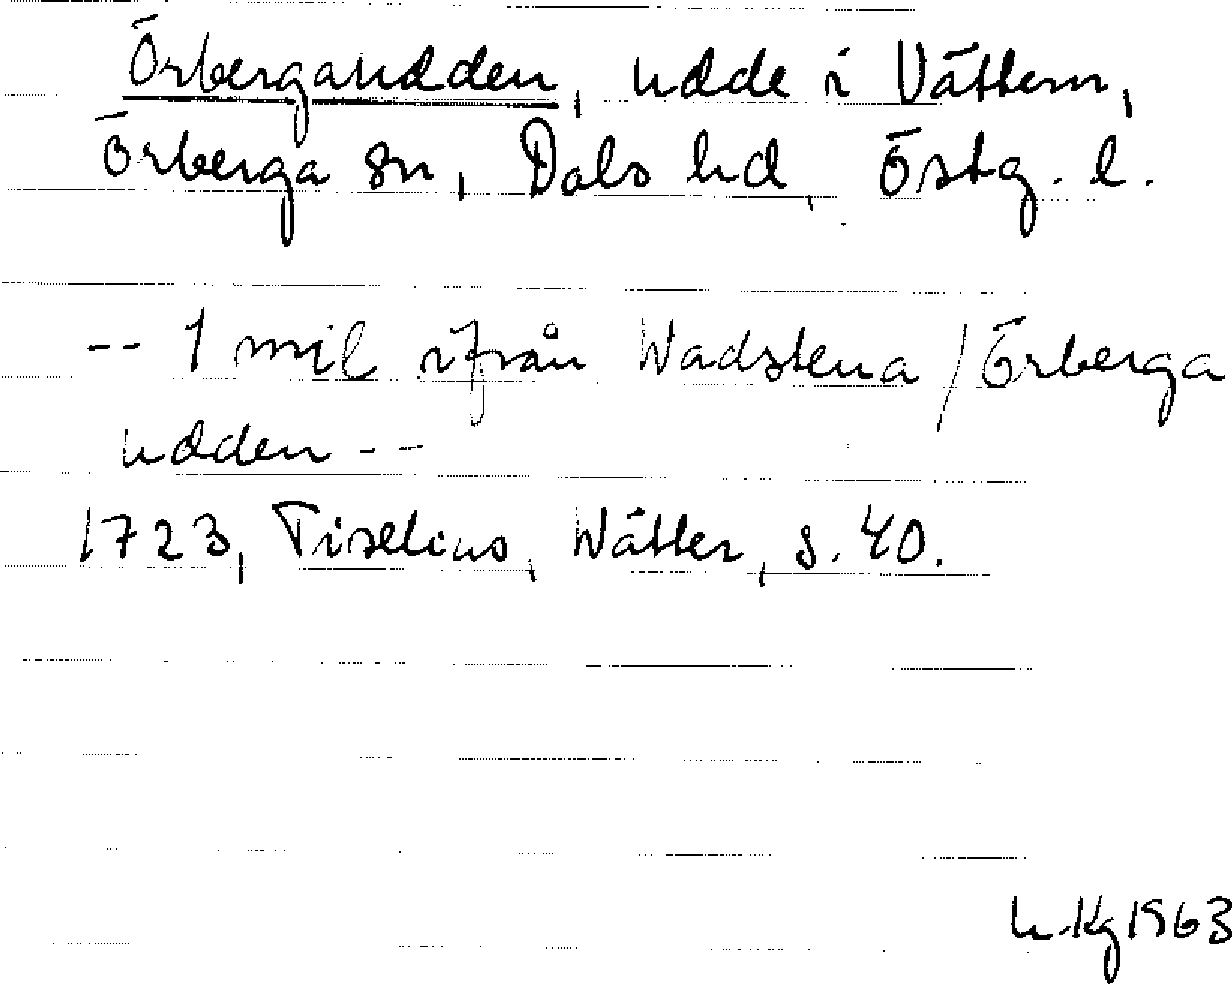 Örbergaudden, udde i Vättern,
Örberga sn, Dals hd, Östg. l.
-- 1 mil ifrån Wadstena / Örberga
udden --
1723, Tiselius, Wätter, s. 40.
1963